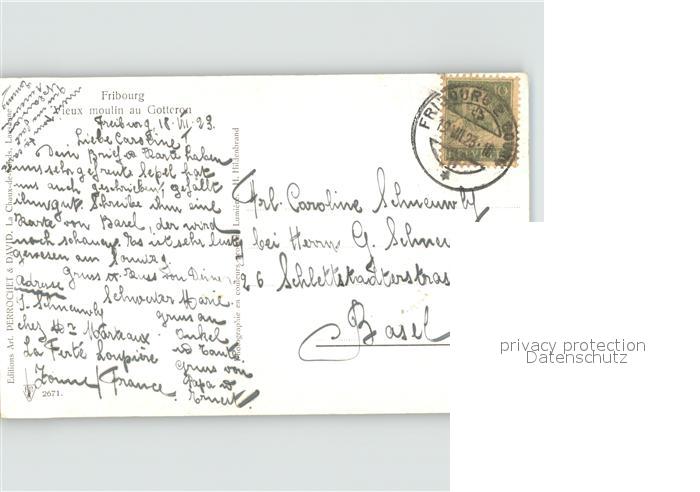 Fribourg
Vieux moulin au Gotteron
Freiburg, 18. VII. 23.
Liebe Caroline!
Dein Brief u. Karte haben
uns sehr gefreut. Sepel hat
uns auch geschrieben, gefällt
ihm gut. Schreibe ihm eine
Karte von Basel, der wird
noch schauen. Es ist sehr lustig
gewesen am Sonntag.
Gruss u. Kuss von Deiner
Schwester Marie
Adresse
J. Schneuwly
chez Mr Marteaux
La Ferté Loupière
Yonne / France
Gruss an
Onkel
und Tante
Gruss von
Papa u
Ernest.
Frl. Caroline Schneuwly
bei Herrn G. Schneu
26 Schlettstadterstras
Basel
FRIBOURG 2
10
HELVETIA
Editions Art. DERROCHET & DAVID, La Chaux-de-Fonds, Lausanne
Photographie en couleurs Lumière, H. Hildenbrand
2671.
privacy protection
Datenschutz